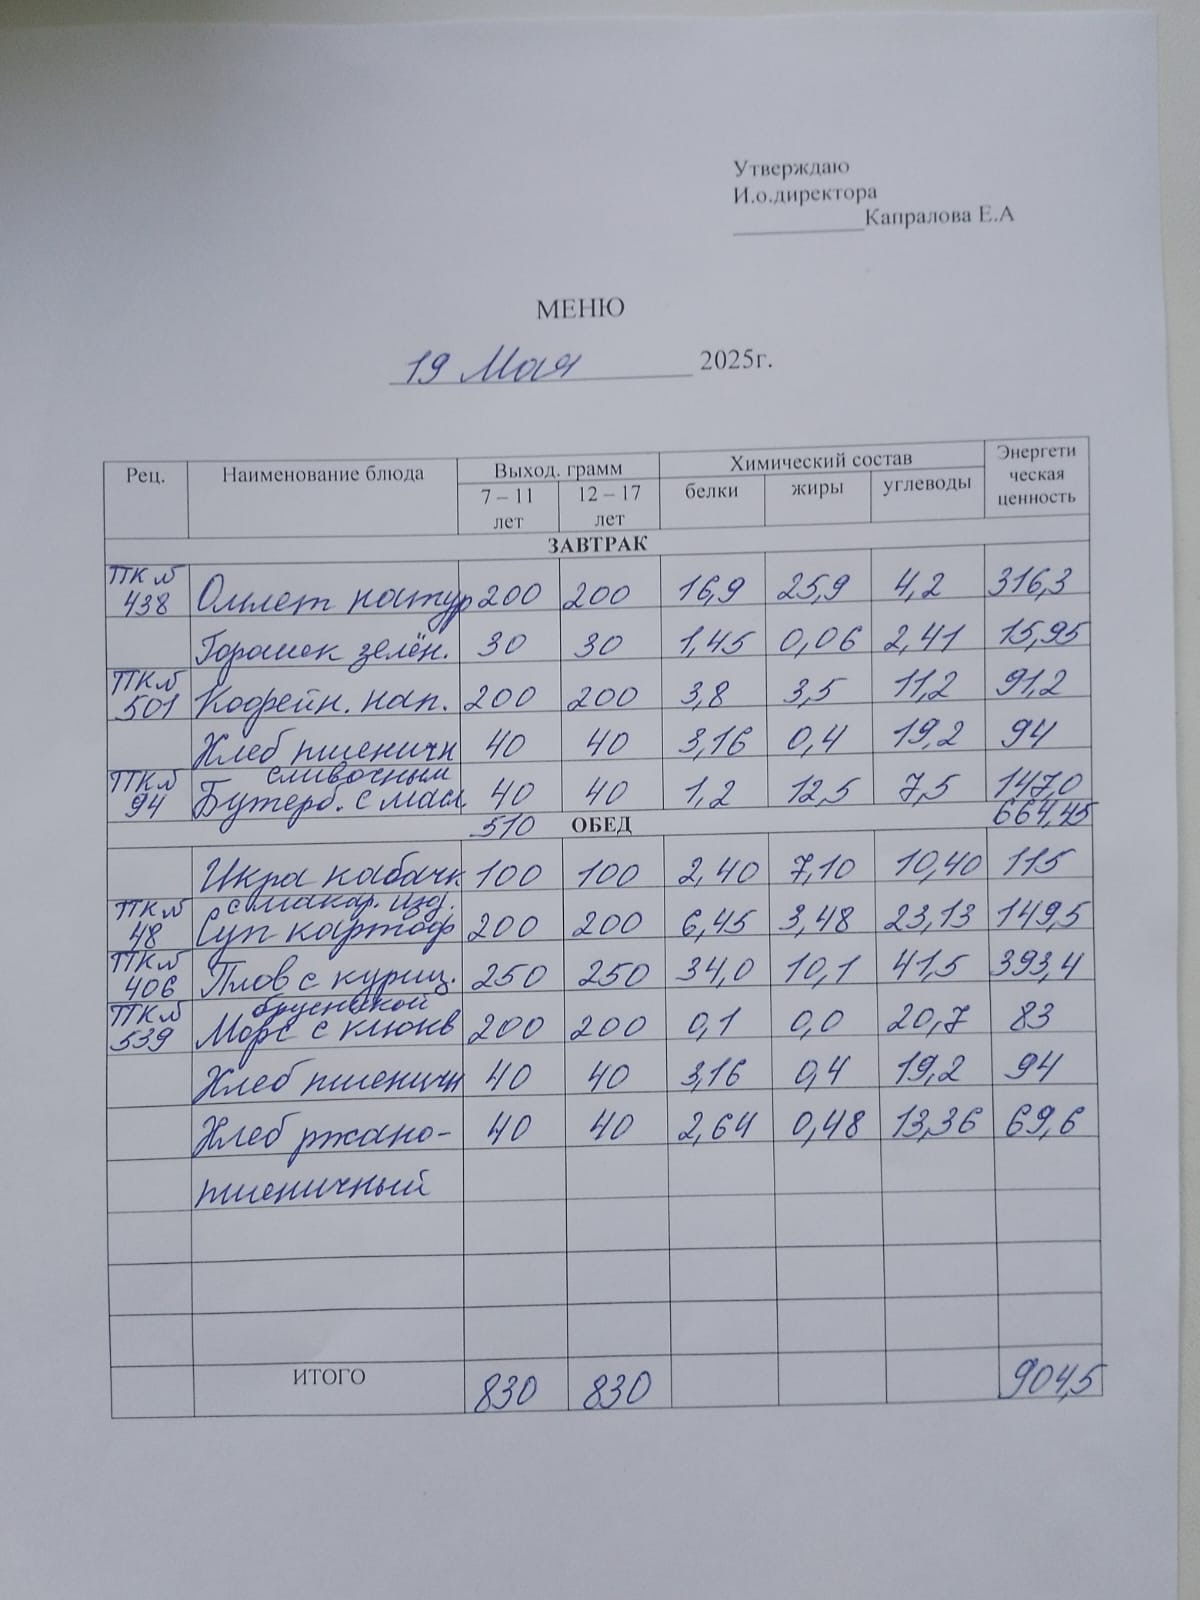 Утверждаю
И.о.директора
____________Капралова Е.А
МЕНЮ
19 Мая 2025г.
Рец. Наименование блюда Выход. грамм Химический состав Энергетическая ценность
7 – 11 лет 12 – 17 лет белки жиры углеводы
ЗАВТРАК
ПК № 438 Омлет натур 200 200 16,9 25,9 4,2 316,3
Горошек зелён. 30 30 1,45 0,06 2,41 15,95
ПК № 501 Кофейн. нап. 200 200 3,8 3,5 11,2 91,2
Хлеб пшеничн 40 40 3,16 0,4 19,2 94
ПК № 94 Бутерб. с масл сливочным 40 40 1,2 12,5 7,5 147,0
510 ОБЕД 664,45
Икра кабачк 100 100 2,40 7,10 10,40 115
ПК № 48 Суп картоф с макар. изд. 200 200 6,45 3,48 23,13 149,5
ПК № 406 Плов с куриц. 250 250 34,0 10,1 41,5 393,4
ПК № 539 Морс с клюкв брусникой 200 200 0,1 0,0 20,7 83
Хлеб пшеничн 40 40 3,16 0,4 19,2 94
Хлеб ржано- 40 40 2,64 0,48 13,36 69,6
пшеничный
ИТОГО 830 830 904,5